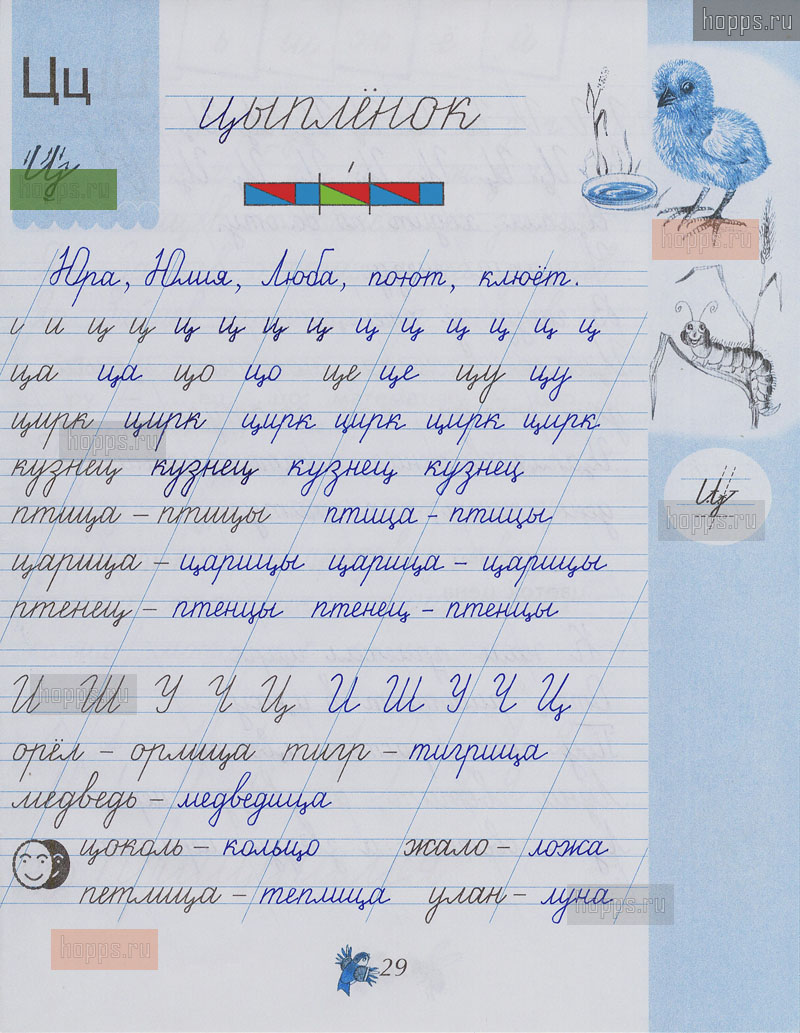 hopps.ru
Цц
цыплёнок
Цц
hopps.ru
hopps.ru
Юра, Юлия, Люба, поют, клюёт.
и и ц ц ц ц ц ц ц ц ц ц ц ц
ца ца цо цо це це цу цу
цирк цирк цирк цирк цирк цирк
hopps.ru
кузнец кузнец кузнец кузнец
Цц
птица – птицы птица – птицы
hopps.ru
царица – царицы царица – царицы
птенец – птенцы птенец – птенцы
И Ш У Ч Ц И Ш У Ч Ц
hopps.ru
орёл – орлица тигр – тигрица
медведь – медведица
цоколь – кольцо жало – ложа
петлица – теплица улан – луна
hopps.ru
hopps.ru
29